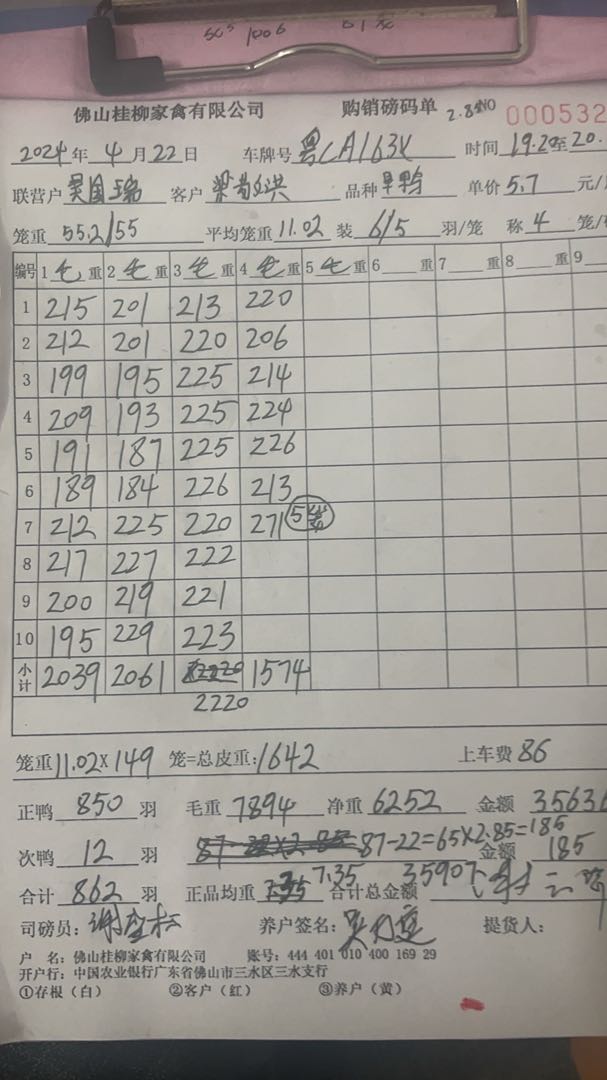 佛山桂柳家禽有限公司 购销磅码单 2.85 NO 000532
2024年 4月22日 车牌号 粤LA163X 时间 19.20至20.
联营户 客户 品种 单价 5.7 元/
笼重 55.2/55 平均笼重 11.02 装 6/5 羽/笼 称 4 笼/
编号 1 毛 重 2 毛 重 3 毛 重 4 毛 重 5 毛 重 6 重 7 重 8 重 9
1 215 201 213 220
2 212 201 220 206
3 199 195 225 214
4 209 193 225 224
5 191 187 225 226
6 189 184 226 213
7 212 225 220 271 5笼
8 217 227 222
9 200 219 221
10 195 229 223
小计 2039 2061 1574
2220
笼重 11.02×149 笼=总皮重: 1642 上车费 86
正鸭 850 羽 毛重 7894 净重 6252 金额 35636
87-22=65×2.85=185
次鸭 12 羽 金额 185
合计 862 羽 正品均重 7.35 合计总金额 35907
司磅员: 养户签名: 提货人:
户 名: 佛山桂柳家禽有限公司 账号: 444 401 010 400 169 29
开户行: 中国农业银行广东省佛山市三水区三水支行
①存根（白） ②客户（红） ③养户（黄）